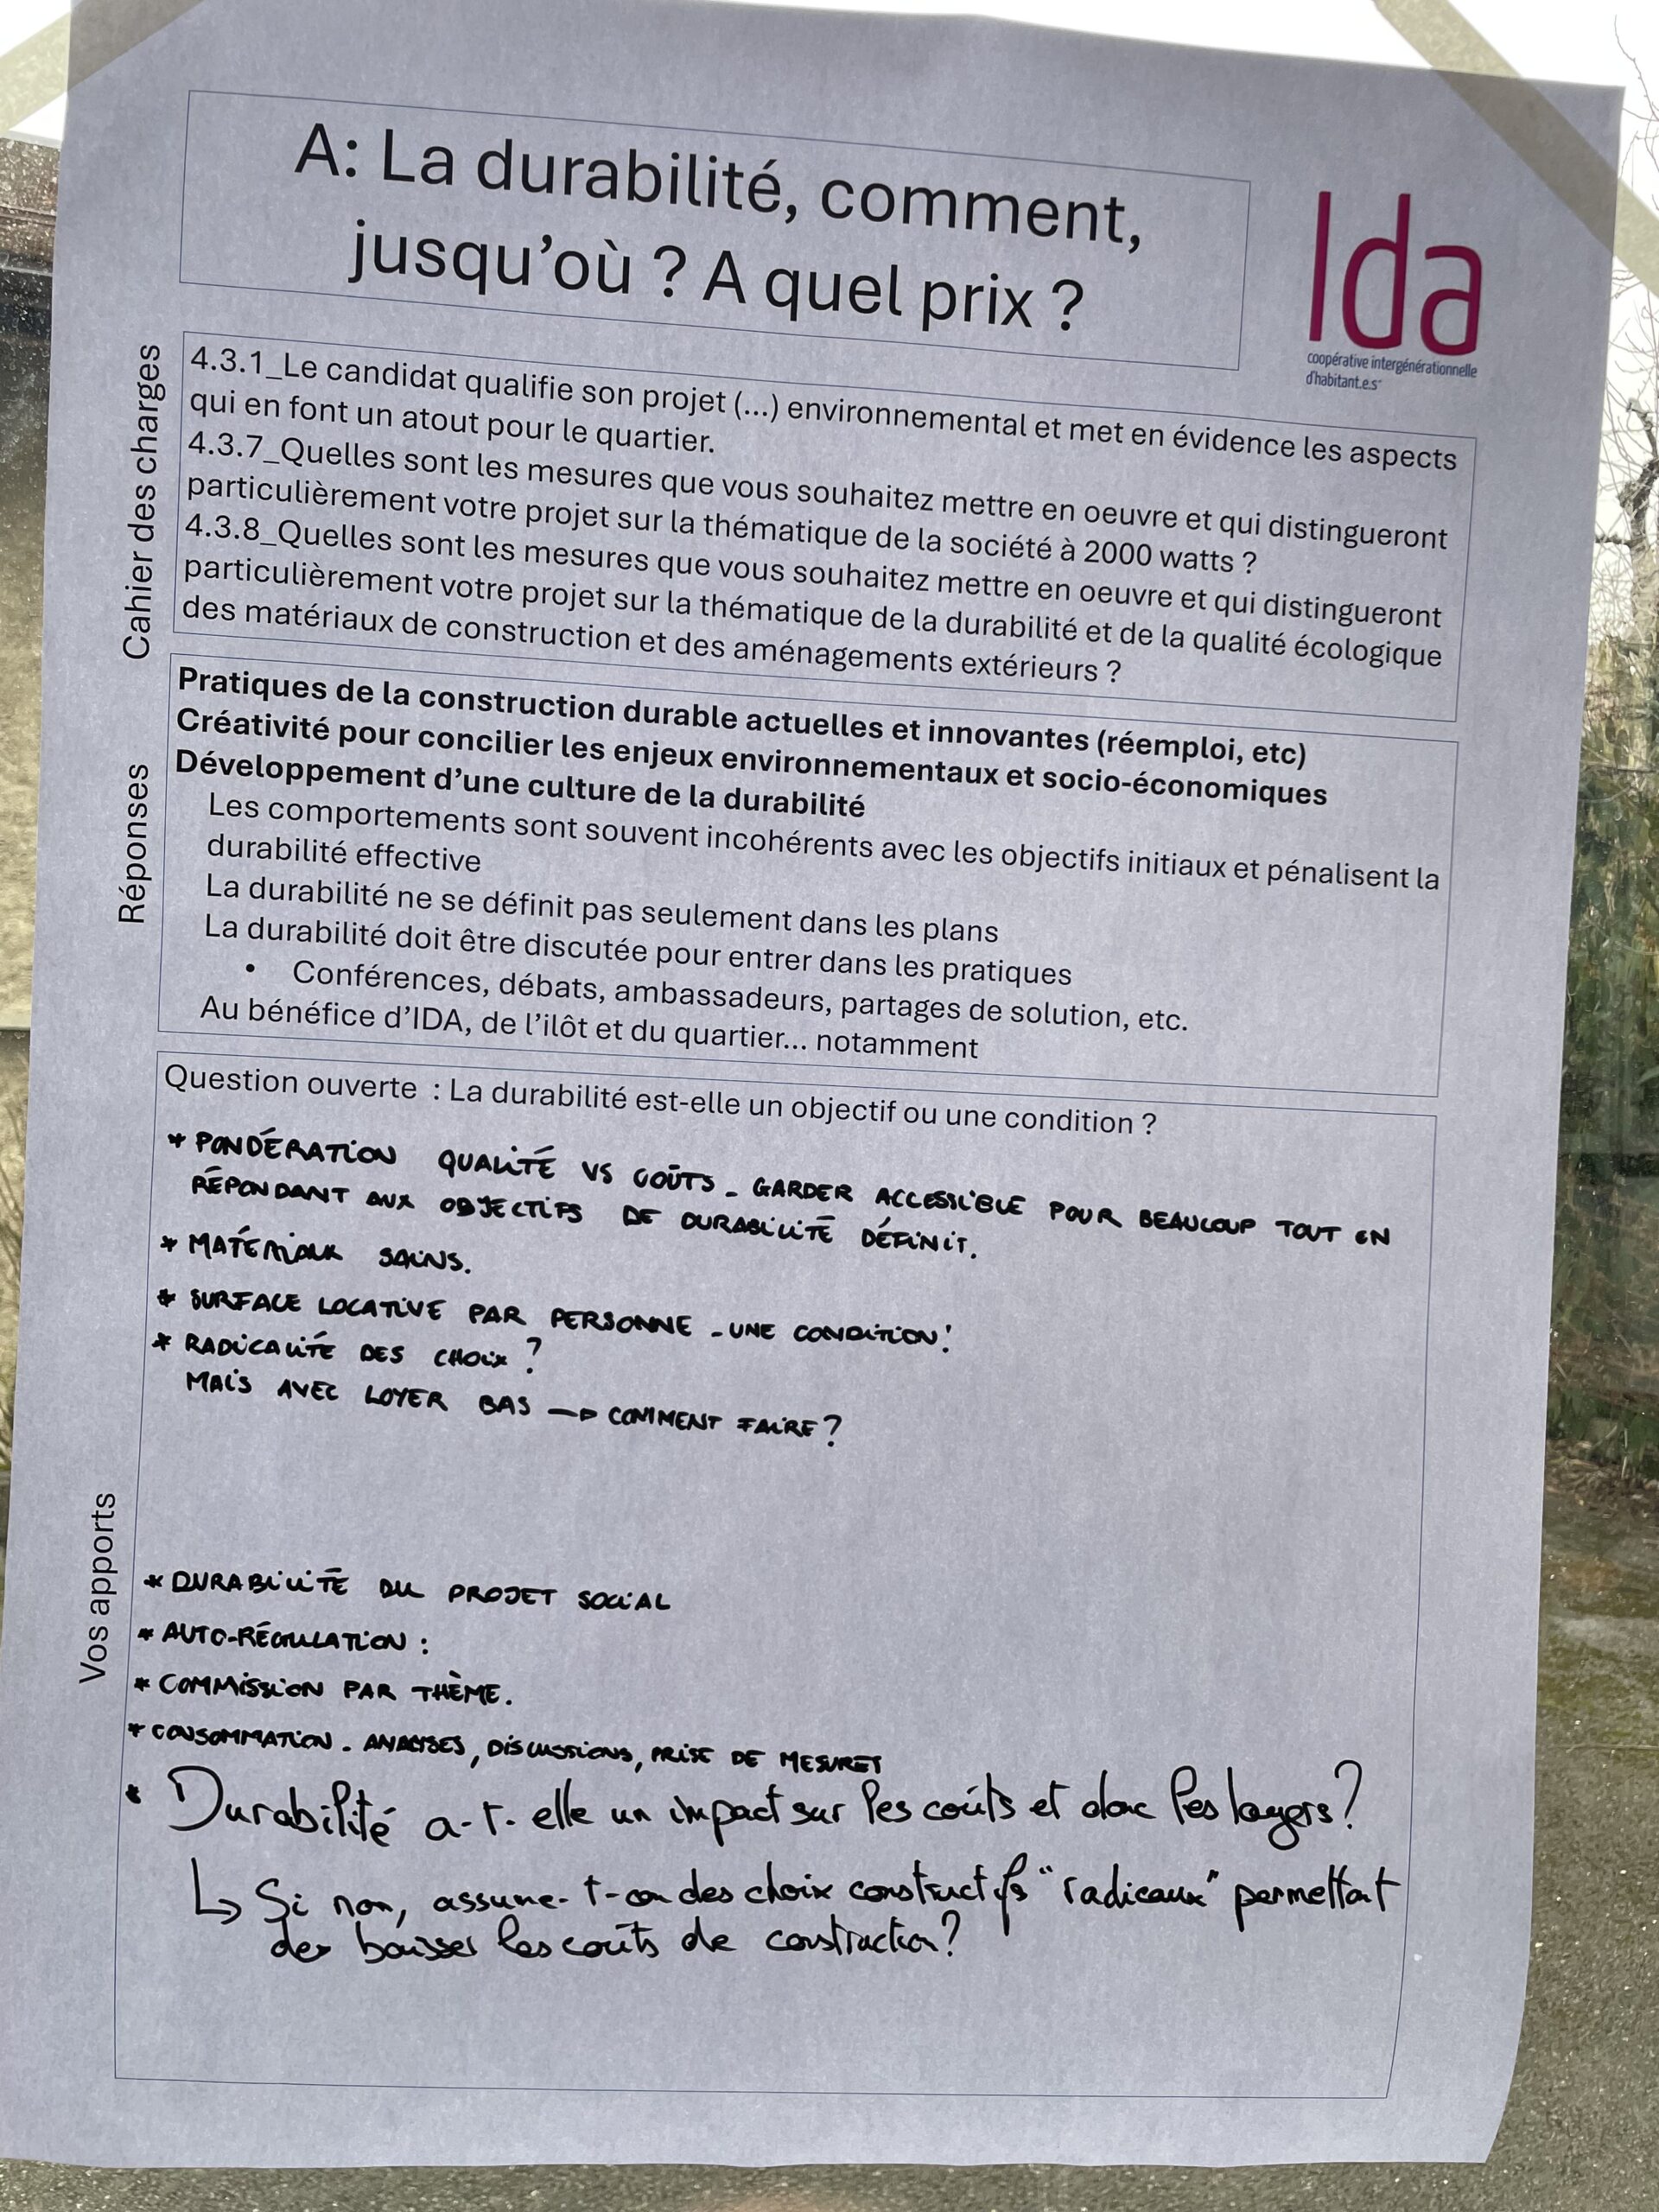 A: La durabilité, comment,
jusqu'où ? A quel prix ?
Ida
coopérative intergénérationnelle
d'habitant.e.s
Cahier des charges
4.3.1_Le candidat qualifie son projet (...) environnemental et met en évidence les aspects
qui en font un atout pour le quartier.
4.3.7_Quelles sont les mesures que vous souhaitez mettre en oeuvre et qui distingueront
particulièrement votre projet sur la thématique de la société à 2000 watts ?
4.3.8_Quelles sont les mesures que vous souhaitez mettre en oeuvre et qui distingueront
particulièrement votre projet sur la thématique de la durabilité et de la qualité écologique
des matériaux de construction et des aménagements extérieurs ?
Réponses
Pratiques de la construction durable actuelles et innovantes (réemploi, etc)
Créativité pour concilier les enjeux environnementaux et socio-économiques
Développement d'une culture de la durabilité
Les comportements sont souvent incohérents avec les objectifs initiaux et pénalisent la
durabilité effective
La durabilité ne se définit pas seulement dans les plans
La durabilité doit être discutée pour entrer dans les pratiques
• Conférences, débats, ambassadeurs, partages de solution, etc.
Au bénéfice d'IDA, de l'ilôt et du quartier... notamment
Vos apports
Question ouverte : La durabilité est-elle un objectif ou une condition ?
* PONDÉRATION QUALITÉ VS COÛTS _ GARDER ACCESSIBLE POUR BEAUCOUP TOUT EN
RÉPONDANT AUX OBJECTIFS DE DURABILITÉ DÉFINIT.
* MATÉRIAUX SAINS.
* SURFACE LOCATIVE PAR PERSONNE - UNE CONDITION!
* RADICALITÉ DES CHOIX ?
MAIS AVEC LOYER BAS → COMMENT FAIRE ?
* DURABILITÉ DU PROJET SOCIAL
* AUTO-RÉGULATION :
* COMMISSION PAR THÈME.
* CONSOMMATION - ANALYSES, DISCUSSIONS, PRISE DE MESURES
* Durabilité a-t-elle un impact sur les coûts et donc les loyers ?
↳ Si non, assume-t-on des choix constructifs "radicaux" permettant
de baisser les coûts de construction ?